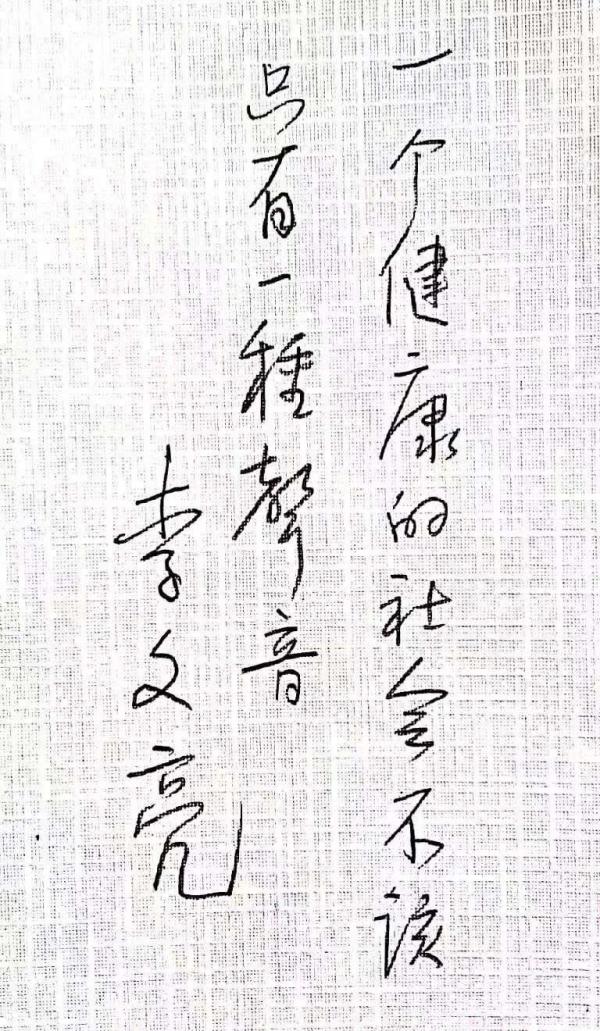 一个健康的社会不该
只有一種聲音
李文亮